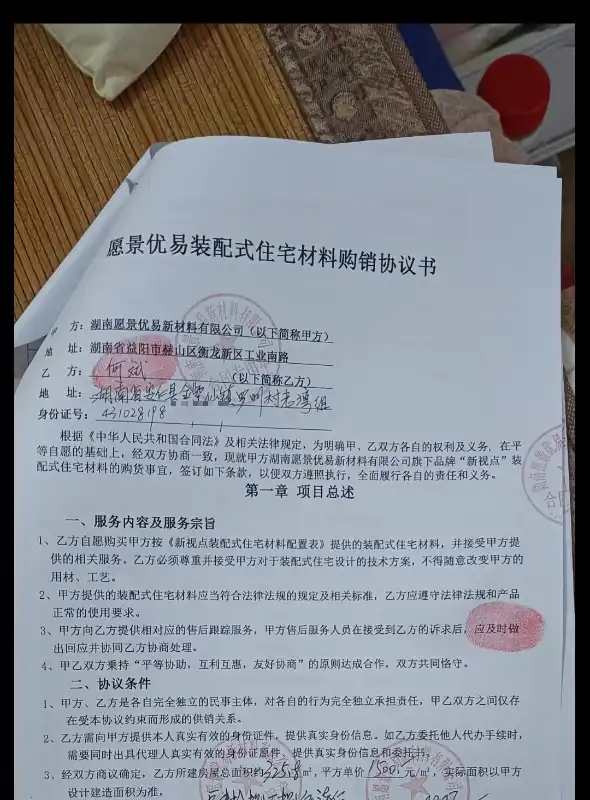 愿景优易装配式住宅材料购销协议书
甲 方：湖南愿景优易新材料有限公司（以下简称甲方）
地 址：湖南省益阳市赫山区衡龙新区工业南路
乙 方：何斌（以下简称乙方）
地 址：湖南省安仁县金紫仙镇 村 组
身份证号：
根据《中华人民共和国合同法》及相关法律规定，为明确甲、乙双方各自的权利及义务，在平
等自愿的基础上，经双方协商一致，现就甲方湖南愿景优易新材料有限公司旗下品牌“新视点”装
配式住宅材料的购货事宜，签订如下条款，以便双方遵照执行，全面履行各自的责任和义务。
第一章 项目总述
一、服务内容及服务宗旨
1、乙方自愿购买甲方按《新视点装配式住宅材料配置表》提供的装配式住宅材料，并接受甲方提
供的相关服务。乙方必须尊重并接受甲方对于装配式住宅设计的技术方案，不得随意改变甲方的
用材、工艺。
2、甲方提供的装配式住宅材料应当符合法律法规的规定及相关标准，乙方应遵守法律法规和产品
正常的使用要求。
3、甲方向乙方提供相对应的售后跟踪服务，甲方售后服务人员在接受到乙方的诉求后，应及时做
出回应并协同乙方协商处理。
4、甲乙双方秉持“平等协助，互利互惠，友好协商”的原则达成合作，双方共同恪守。
二、协议条件
1、甲方、乙方是各自完全独立的民事主体，对各自的行为完全独立承担责任，甲乙双方之间仅存
在受本协议约束而形成的供销关系。
2、乙方需向甲方提供本人真实有效的身份证件，提供真实身份信息。如乙方委托他人代办手续时，
需要同时出具代理人真实有效的身份证原件、提供真实身份信息和委托书。
3、经双方商议确定，乙方所建房屋总面积约325.8㎡，平方单价1500元/㎡，实际面积以甲方
设计建造面积为准。